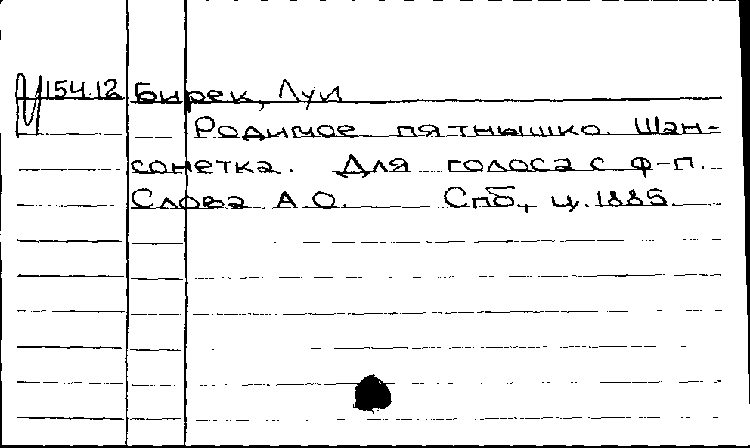 V154.12 Бирек, Луи
Родимое пятнышко. Шан-
сонетка. Для голоса с ф-п.
Слова А.О. Спб., ц. 1885.